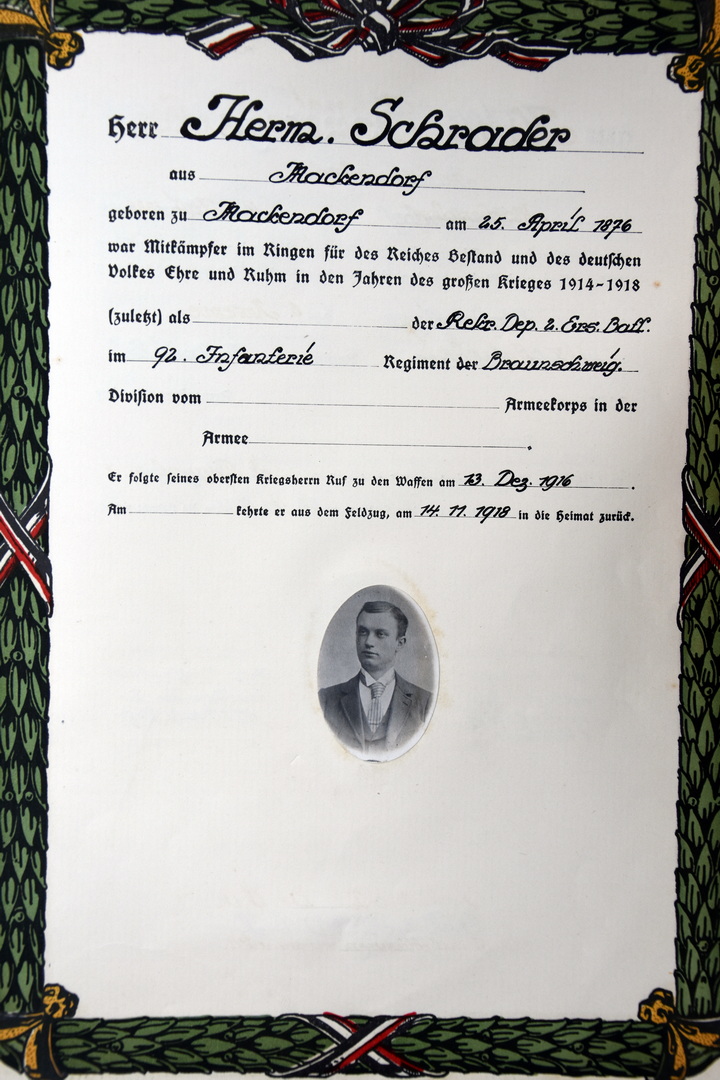 Herr Herm. Schrader
aus Mackendorf
geboren zu Mackendorf am 25. April 1876
war Mitkämpfer im Ringen für des Reiches Bestand und des deutschen
Volkes Ehre und Ruhm in den Jahren des großen Krieges 1914-1918
(zuletzt) als der Rekr. Dep. 2. Ers. Batl.
im 92. Infanterie Regiment der Braunschweig.
Division vom Armeekorps in der
Armee .
Er folgte seines obersten Kriegsherrn Ruf zu den Waffen am 13. Dez. 1916 .
Am kehrte er aus dem Feldzug, am 14. 11. 1918 in die Heimat zurück.